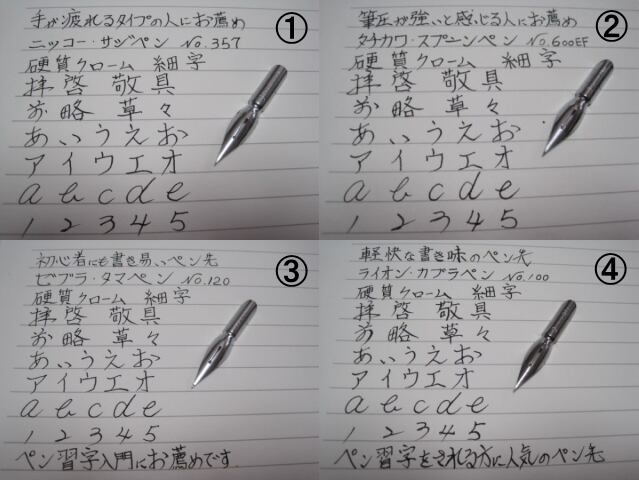 ①
手が疲れるタイプの人にお薦め
ニッコー・サジペン No.357
硬質クローム 細字
拝啓 敬具
前略 草々
あいうえお
アイウエオ
a b c d e
1 2 3 4 5
②
筆圧が強いと感じる人にお薦め
タチカワ・スプーンペン No.600EF
硬質クローム 細字
拝啓 敬具
前略 草々
あいうえお
アイウエオ
a b c d e
1 2 3 4 5
③
初心者にも書き易いペン先
ゼブラ・タマペン No.120
硬質クローム 細字
拝啓 敬具
前略 草々
あいうえお
アイウエオ
a b c d e
1 2 3 4 5
ペン習字入門にお薦めです
④
軽快な書き味のペン先
ライオン・カブラペン No.100
硬質クローム 細字
拝啓 敬具
前略 草々
あいうえお
アイウエオ
a b c d e
1 2 3 4 5
ペン習字をされる方に人気のペン先